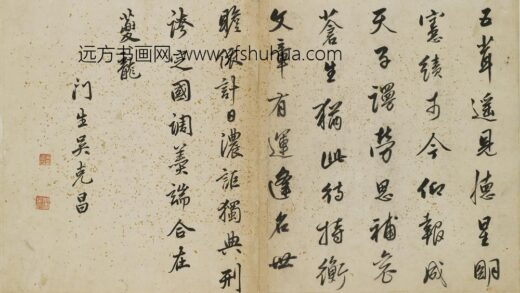 五茸遥見德星明
憲績于今仰報成
天子勞思補衮
蒼生猶此待持衡
文章有運逢名世
瞻計日濃詎獨典刑
誇定國調羹端合在
夔龍
门生吴克昌
远方书画网